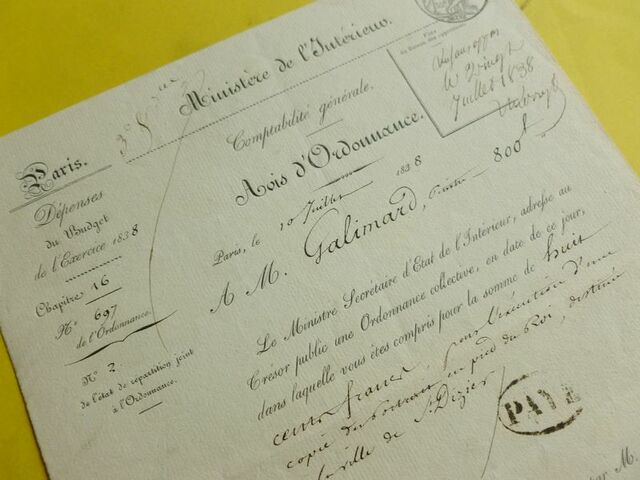 Ministère de l'Intérieur.
Comptabilité générale.
Avis d'Ordonnance.
Visa
au Bureau des oppositions
le Vingt
Juillet 1838
Paris.
Dépenses
du Budget
de l'Exercice 1838
Chapitre 16
N° 697
de l'Ordonnance.
N° 2
de l'état de répartition joint
à l'Ordonnance.
Paris, le 10 Juillet 1838
A M. Galimard, Peintre - 800f
Le Ministre Secrétaire d'Etat de l'Intérieur, adresse au
Trésor public une Ordonnance collective, en date de ce jour,
dans laquelle vous êtes compris pour la somme de huit
cents francs, pour l'exécution d'une
copie du portrait en pied du Roi, destinée
à la ville de St Dizier
PAYÉ
par M.